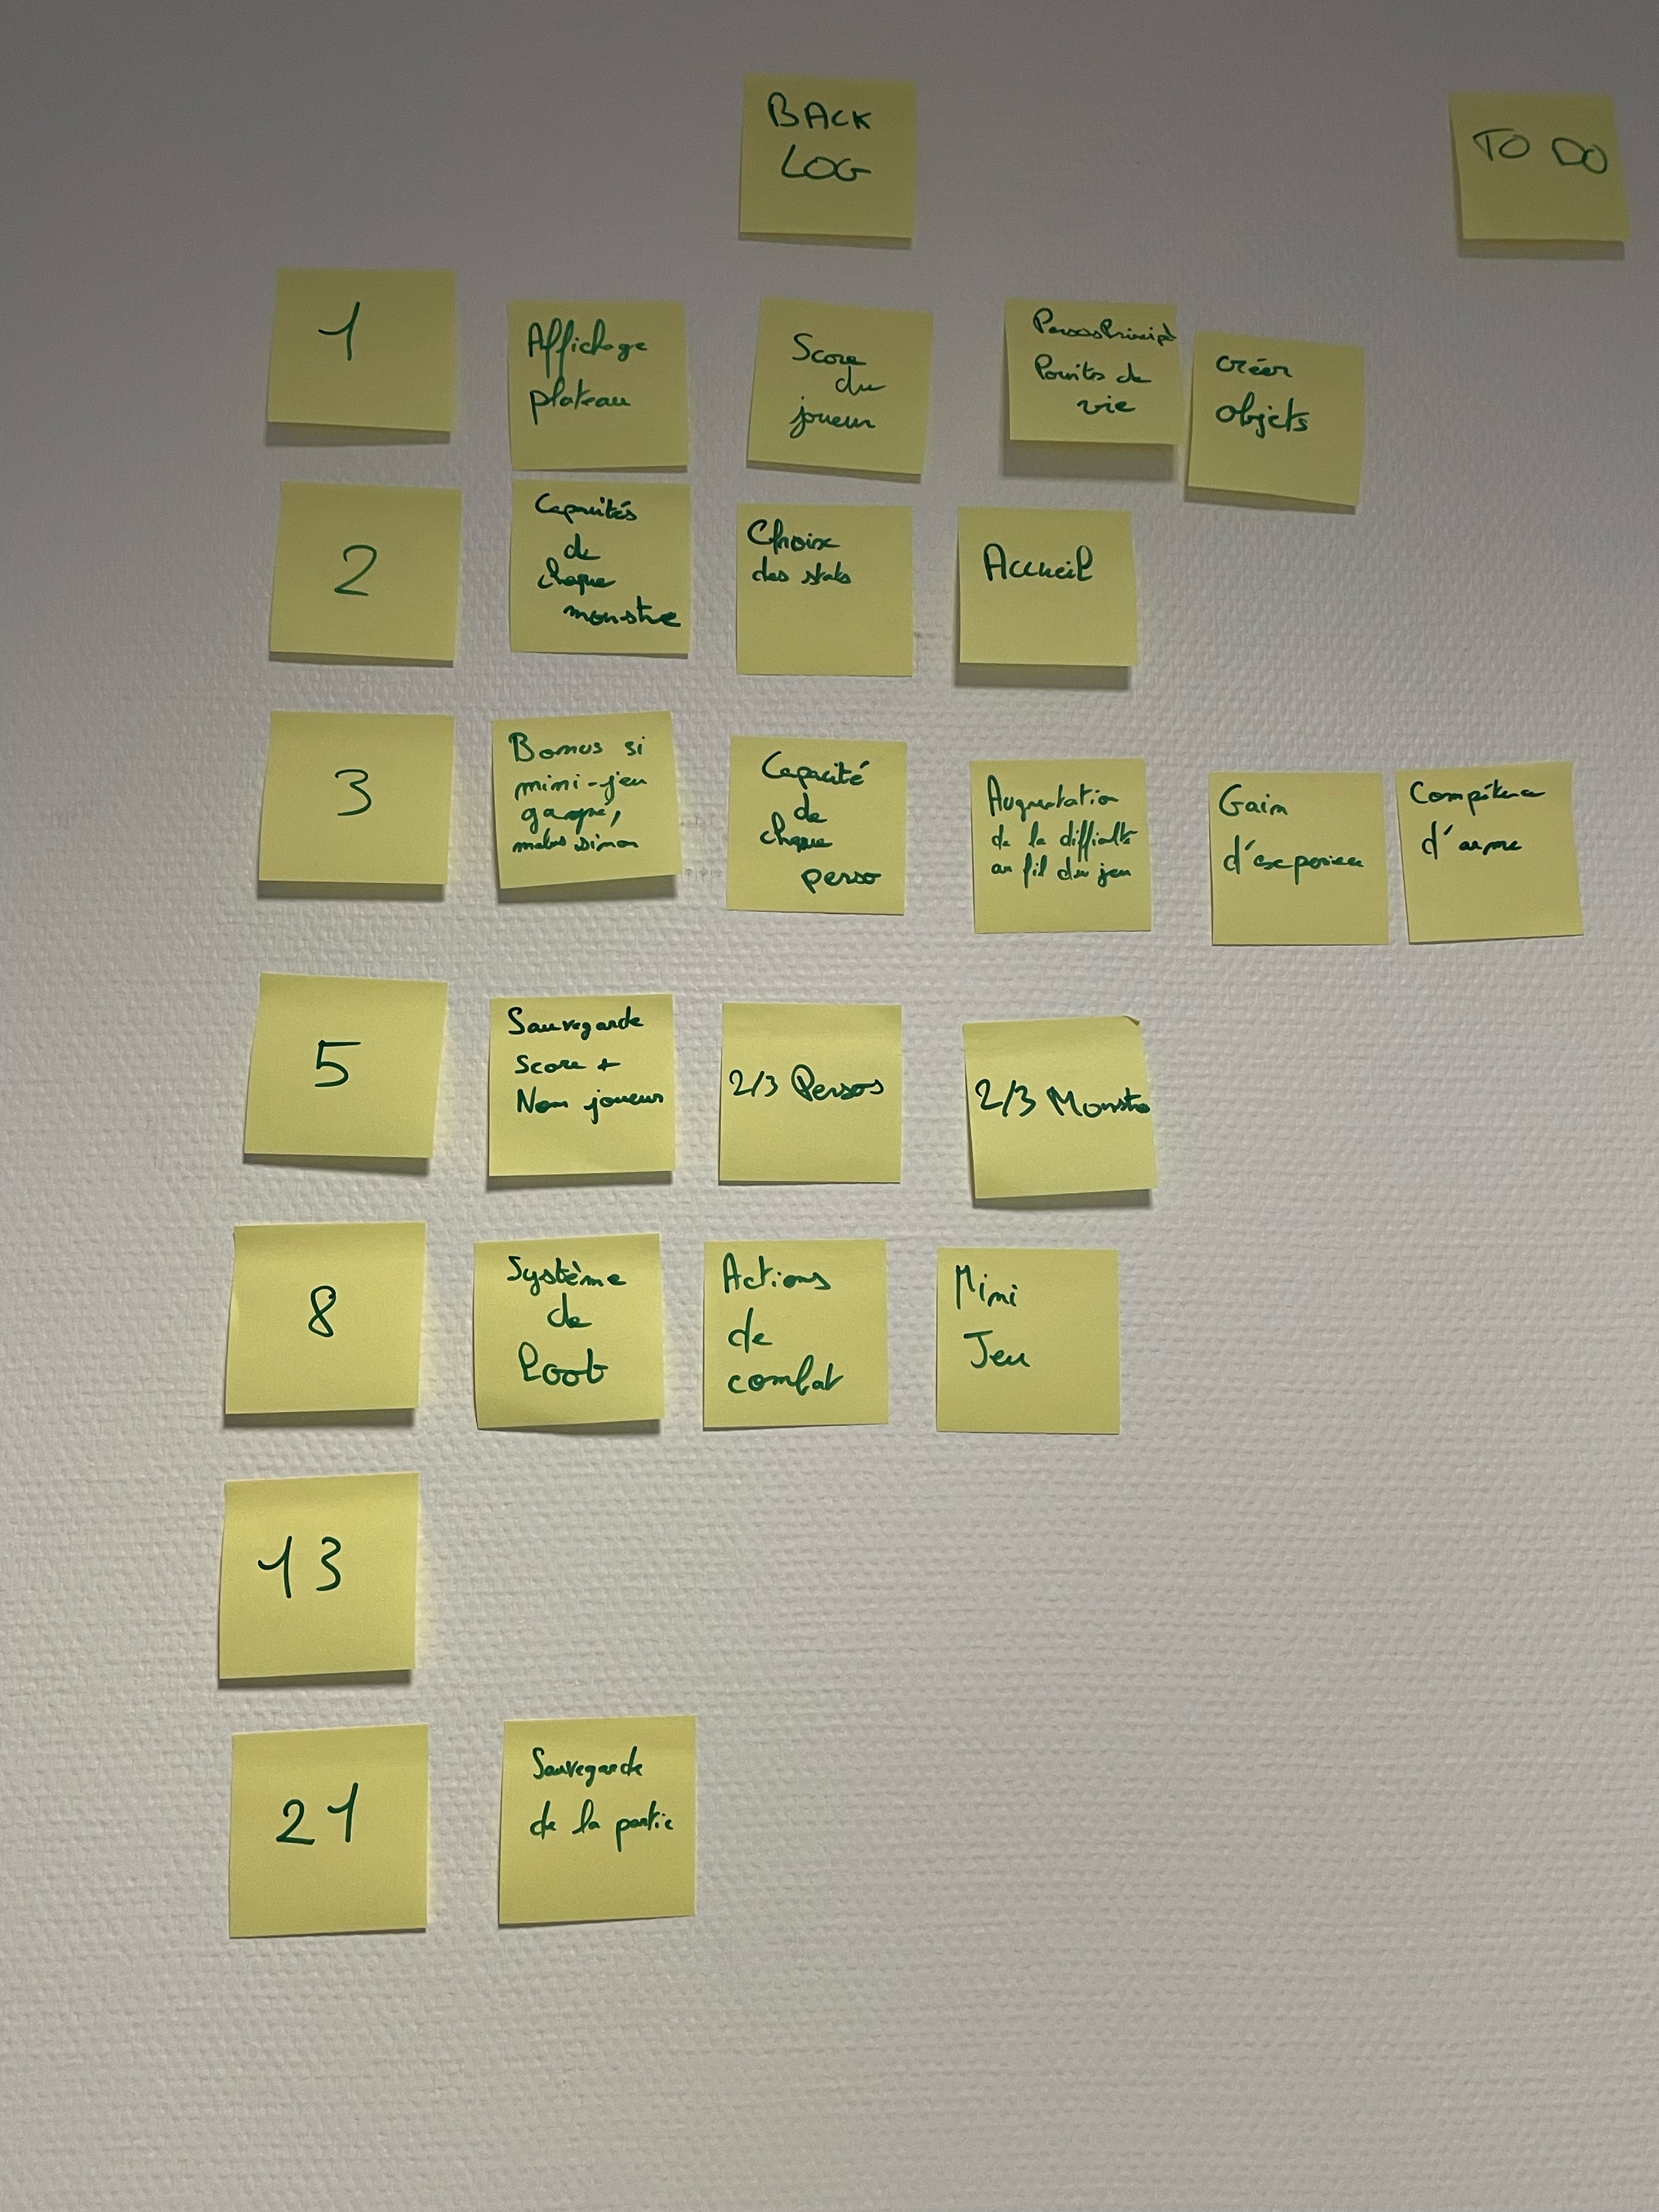 BACK
LOG
TO DO
1
Affichage
plateau
Score
du
joueur
Points de
vie
créer
objets
2
Capacités
de
chaque
monstre
Choix
des stats
Accueil
3
Bonus si
mini-jeu
gagné,
malus sinon
Capacité
de
chaque
perso
Augmentation
de la difficulté
au fil du jeu
Gain
Compétence
d'arme
5
Sauvegarde
Score +
Nom joueur
2/3 Persos
2/3
8
Système
de
loot
Actions
de
combat
Mini
Jeu
13
21
Sauvegarde
de la partie